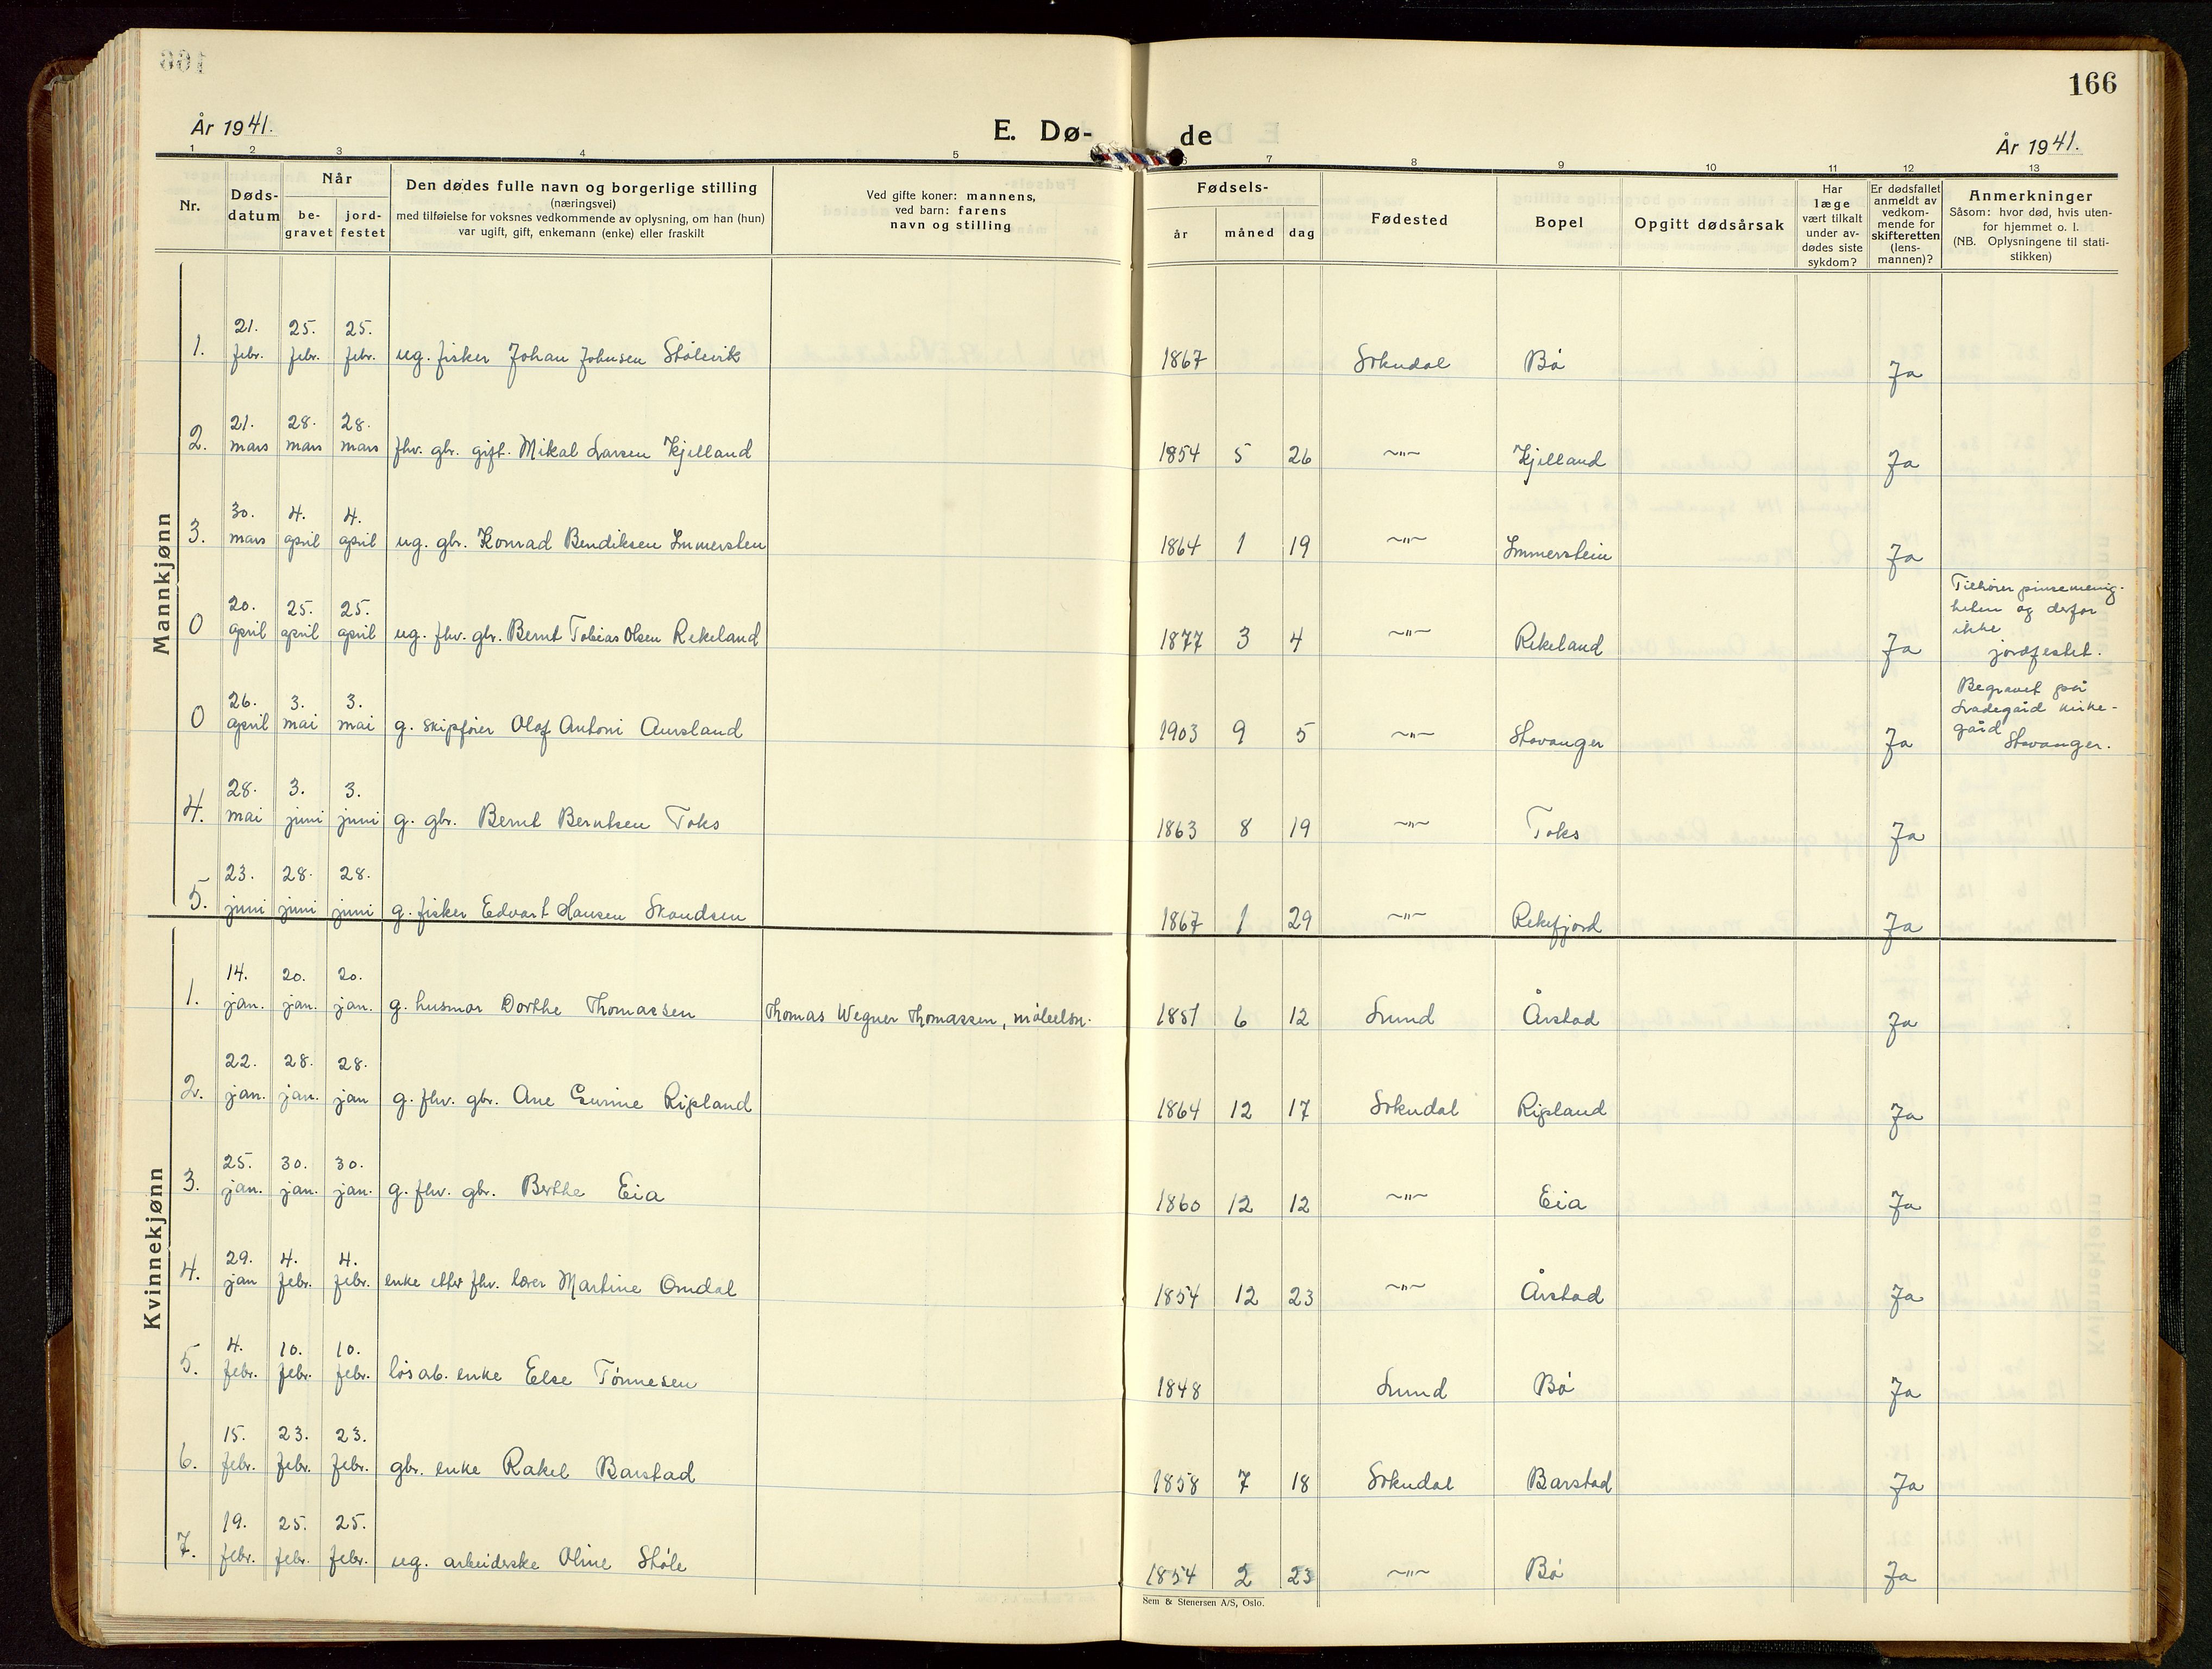 166
År 1941.
E. Dø-
de
År 1941.
1 2 3 4 5 6 7 8 9 10 11 12 13
Nr.
Døds-
datum
Når
be-
gravet
jord-
festet
Den dødes fulle navn og borgerlige stilling
(næringsvei)
med tilføielse for voksnes vedkommende av oplysning, om han (hun)
var ugift, gift, enkemann (enke) eller fraskilt
Ved gifte koner: mannens,
ved barn: farens
navn og stilling
Fødsels-
år måned dag
Fødested
Bopel
Opgitt dødsårsak
Har
læge
vært tilkalt
under av-
dødes siste
sykdom?
Er dødsfallet
anmeldt av
vedkom-
mende for
skifteretten
(lens-
mannen)?
Anmerkninger
Såsom: hvor død, hvis uten-
for hjemmet o. l.
(NB. Oplysningene til stati-
stikken)
Mannkjønn
1. 21. febr. 25. febr. 25. febr. ug. fisker Johan Johnsen Stølevik 1867 Sokndal Bø Ja
2. 21. mars 28. mars 28. mars fhv. gbr. gift. Mikal Larsen Kjelland 1854 5 26 ~"~ Kjelland Ja
3. 30. mars 4. april 4. april ug. gbr. Konrad Bendiksen Immerstein 1864 1 19 ~"~ Immerstein Ja
0 20. april 25. april 25. april ug. fhv. gbr. Bernt Tobias Olsen Rekeland 1877 3 4 ~"~ Rekeland Ja
Tilhører pinsemenig-
heten og derfor
ikke
jordfestet.
0 26. april 3. mai 3. mai g. skipfører Olaf Antoni Aursland 1903 9 5 ~"~ Stavanger Ja
Begravet på
kirke-
gård
Stavanger.
4. 28. mai 3. juni 3. juni g. gbr. Bernt Berntsen Toks 1863 8 19 ~"~ Toks Ja
5. 23. juni 28. juni 28. juni g. fisker Edvart Hansen 1867 1 29 ~"~ Rekefjord Ja
Kvinnekjønn
1. 14. jan. 20. jan. 20. jan. g. husmor Dorthe Thomassen Thomas Wegner Thomassen, 1851 6 12 Lund Årstad Ja
2. 22. jan. 28. jan. 28. jan g. fhv. gbr. Ane Gurine Ripland 1864 12 17 Sokndal Ripland Ja
3. 25. jan. 30. jan. 30. jan. g. fhv. gbr. Berthe Eia 1860 12 12 ~"~ Eia Ja
4. 29. jan 4. febr. 4. febr. enke etter fhv. lærer Martine Omdal 1854 12 23 ~"~ Årstad Ja
5. 4. febr. 10. febr. 10. febr. løsab. enke Else Tønnesen 1848 Lund Bø Ja
6. 15. febr. 23. febr. 23. febr. gbr. enke Rakel Barstad 1858 7 18 Sokndal Barstad Ja
7. 19. febr. 25. febr. 25. febr. ug. arbeiderske Oline Støle 1854 2 23 ~"~ Bø Ja
Sem & Stenersen A/S, Oslo.